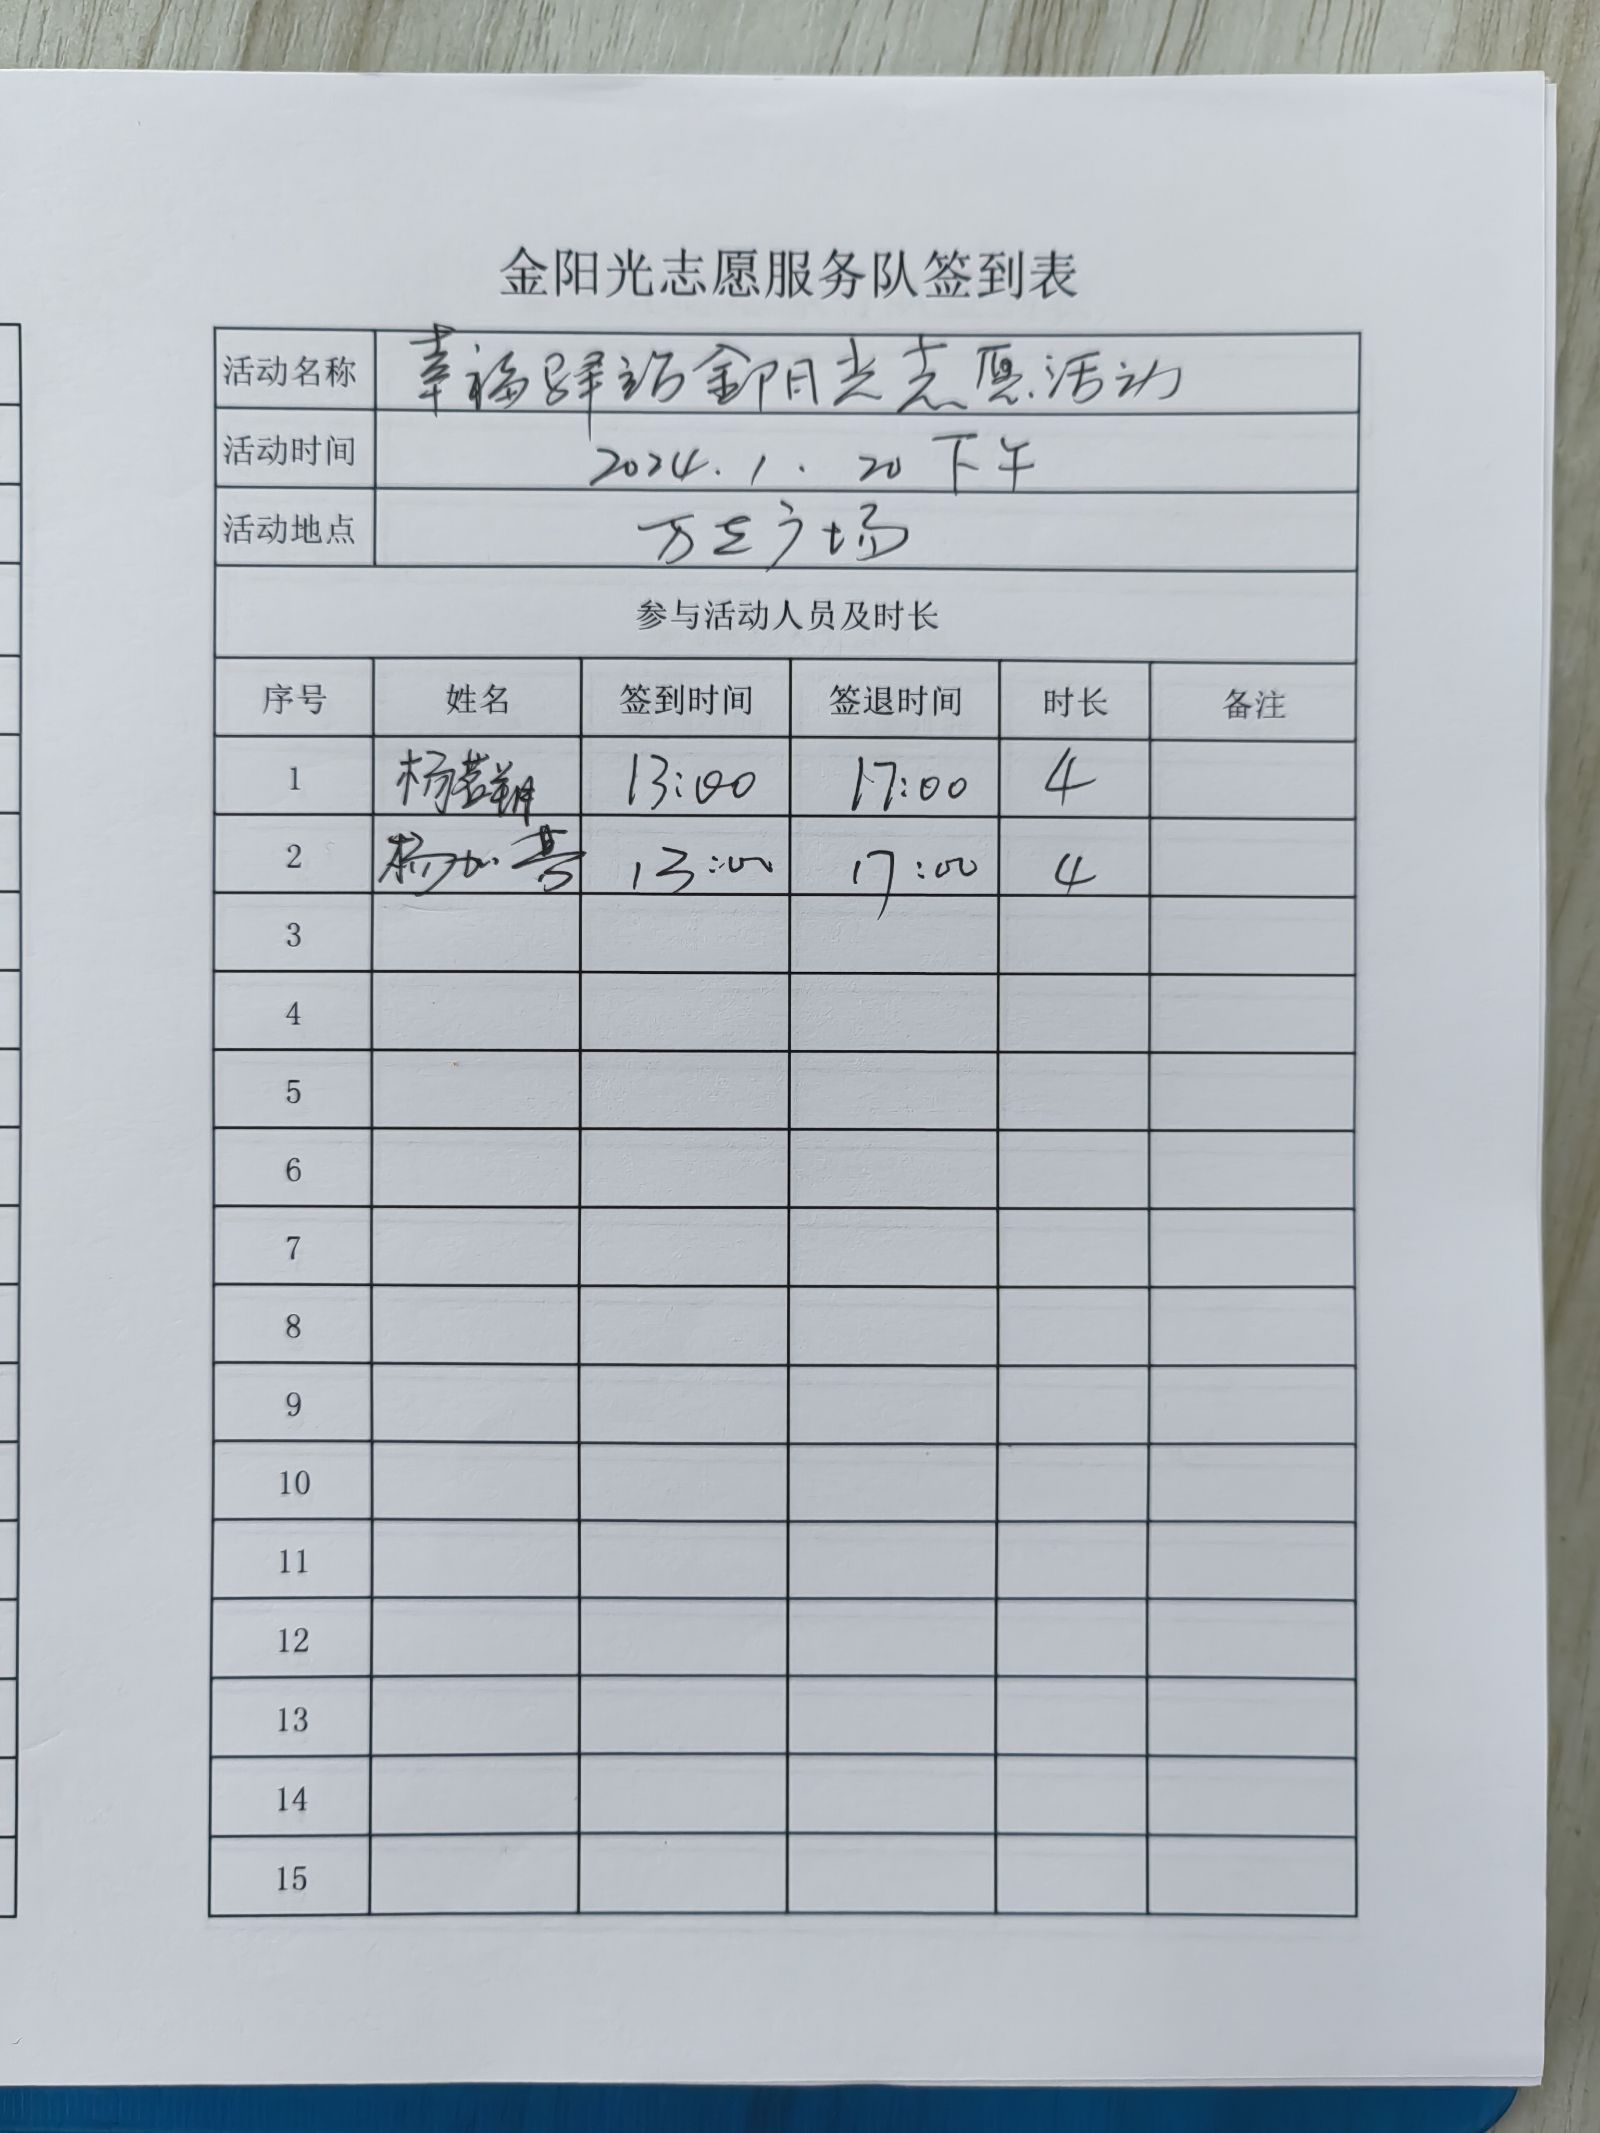 金阳光志愿服务队签到表
活动名称 幸福驿站金阳光志愿活动
活动时间 2024.1.20下午
活动地点 万达广场
参与活动人员及时长
序号 姓名 签到时间 签退时间 时长 备注
1 杨茗朔 13:00 17:00 4
2 杨 13:00 17:00 4
3
4
5
6
7
8
9
10
11
12
13
14
15